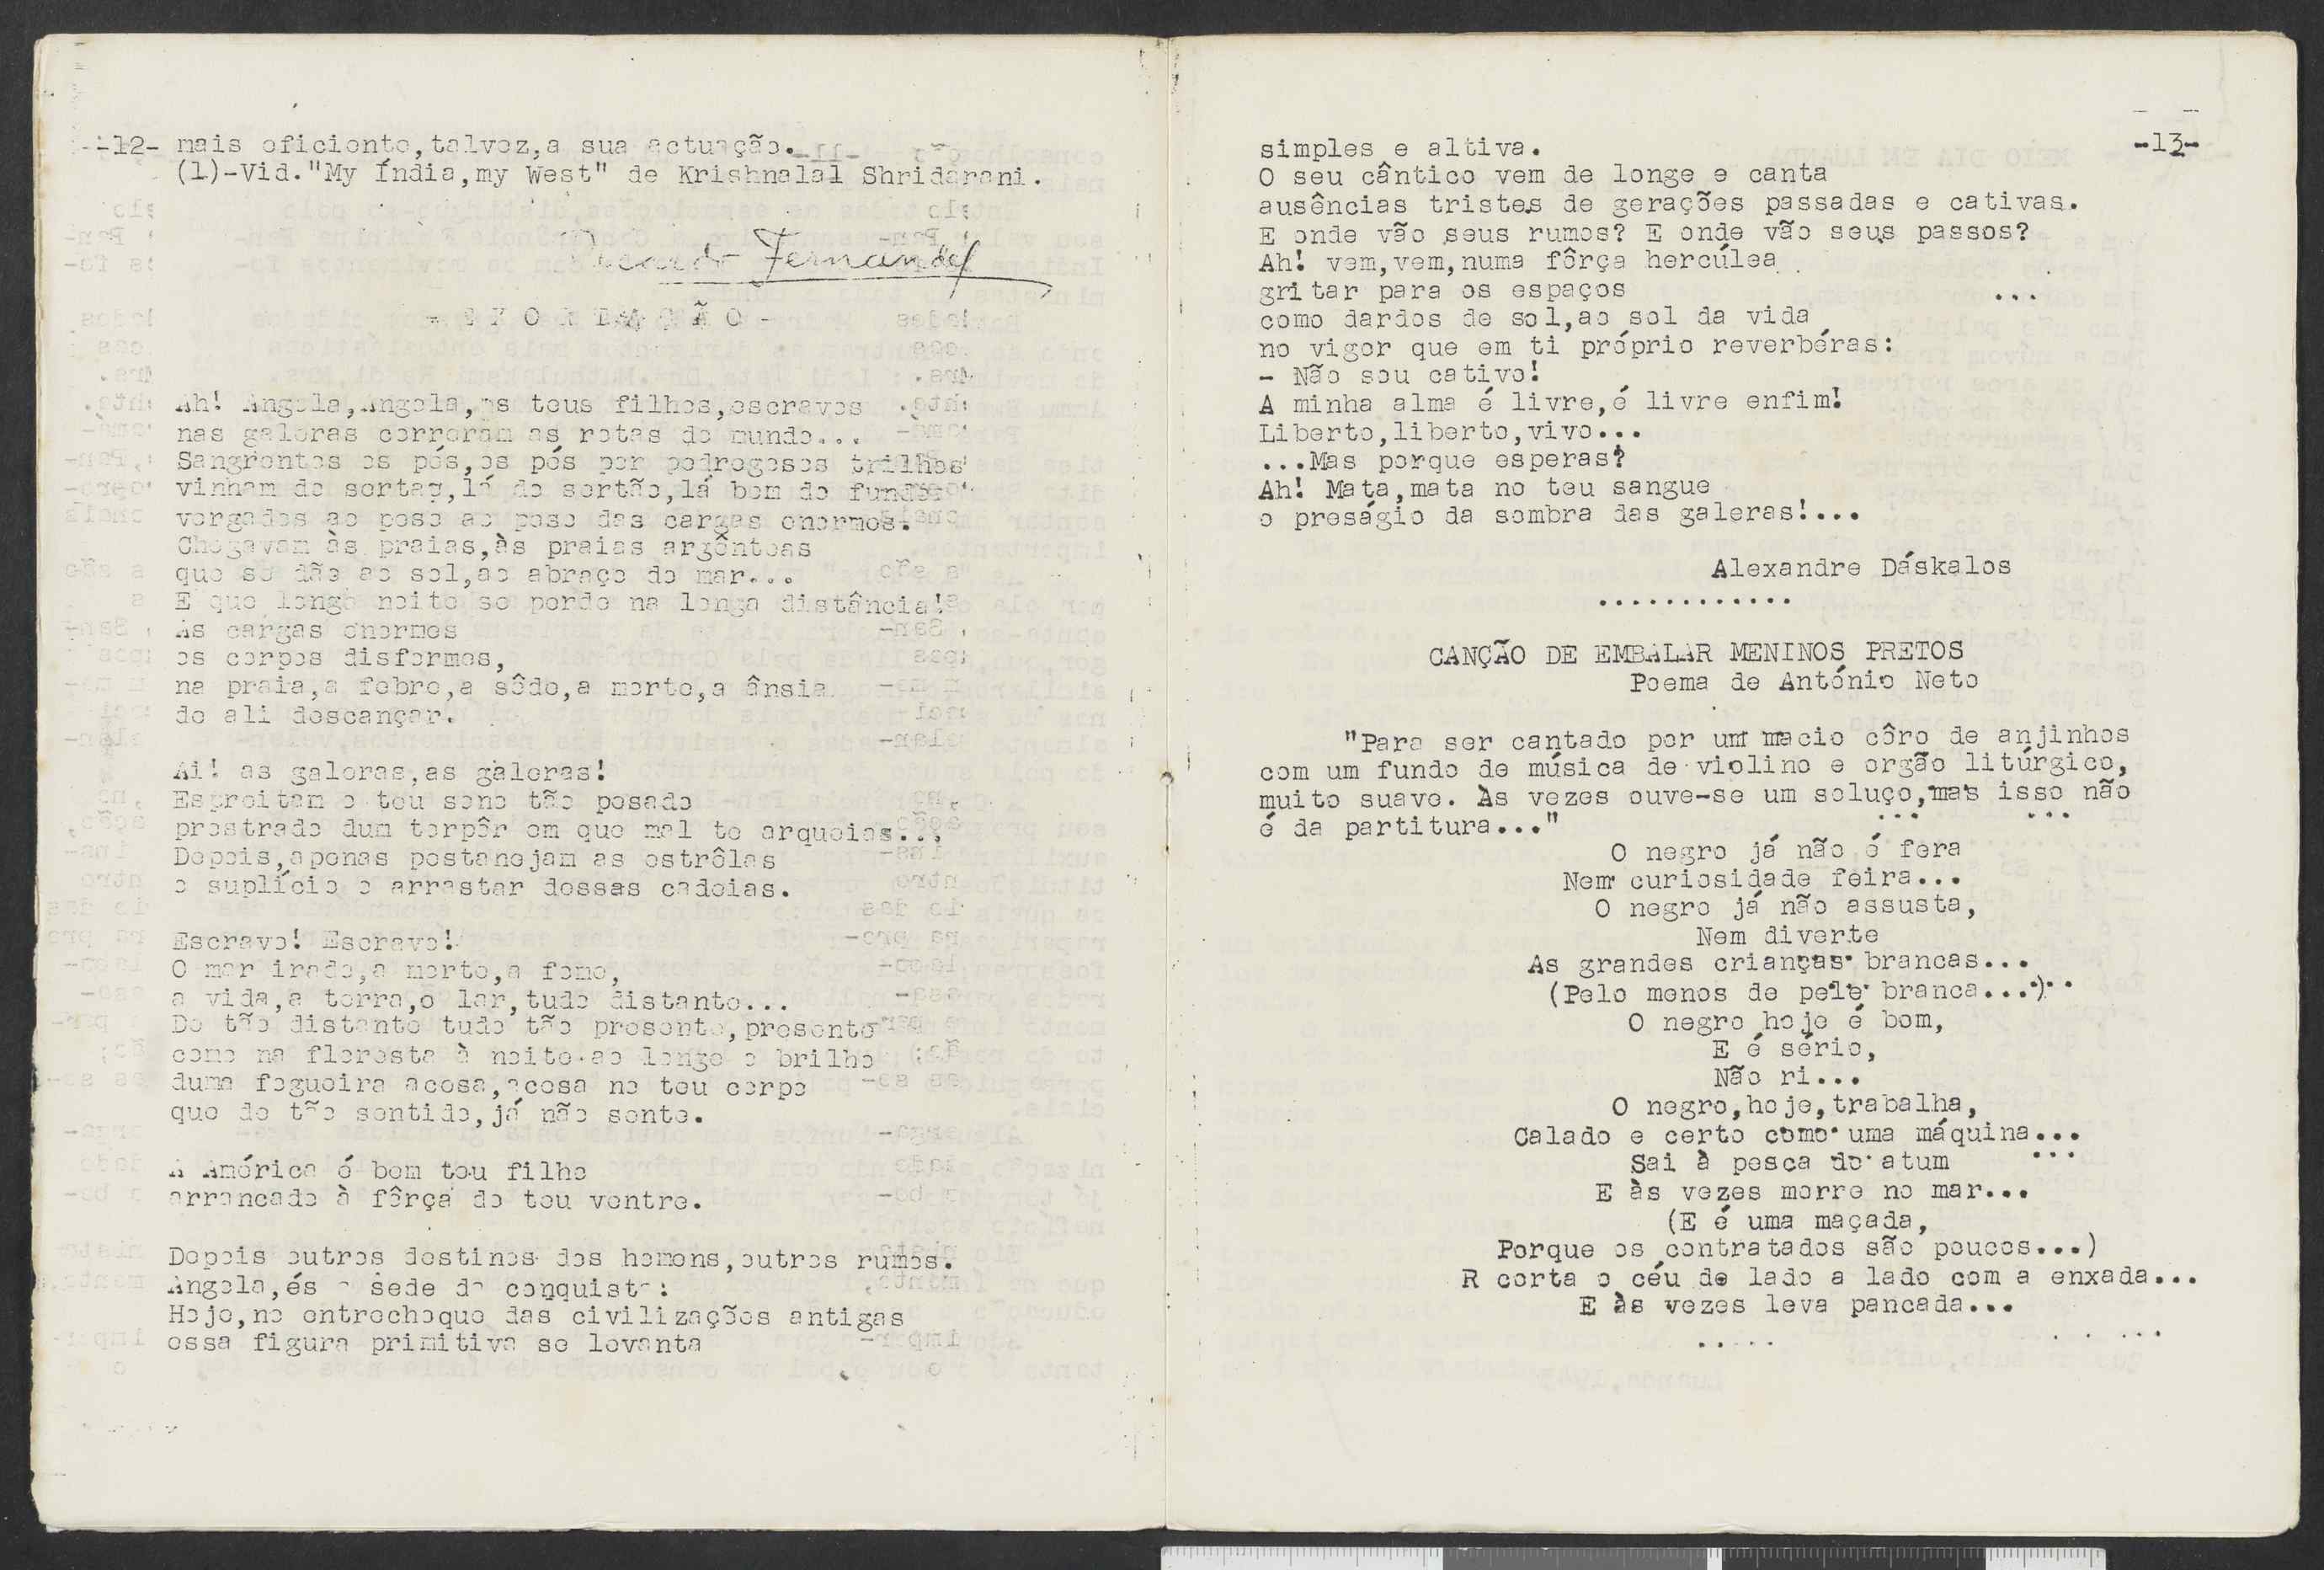 -12- mais eficiente,talvez,a sua actuação.
(1)-Vid."My Índia,my West" de Krishnalal Shridarani.
Fernandes
Ah! Angola,Angola,os teus filhos,escravos
nas galeras correram as rotas do mundo...
Sangrentos os pés,os pés por pedregosos trilhos
vinham do sertão,lá do sertão,lá bem do fundo
vergados ao peso ao peso das cargas enormes.
Chegavam às praias,às praias argênteas
que se dão ao sol,ao abraço do mar...
E que longa noite se perde na longa distância!
As cargas enormes
os corpos disformes,
na praia,a febre,a sêde,a morte,a ânsia
de ali descançar.
Ai! as galeras,as galeras!
Espreitam o teu sono tão pesado
prostrado dum torpôr em que mal te arqueias...
Depois,apenas pestanejam as estrêlas
o suplício e arrastar dessas cadeias.
Escravo! Escravo!
O mar irado,a morte,a fome,
a vida,a terra,o lar,tudo distante...
De tão distante tudo tão presente,presente
como na floresta à noite ao longe o brilho
duma fogueira acesa,acesa no teu corpo
que de tão sentido,já não sente.
A América é bem teu filho
arrancado à fôrça do teu ventre.
Depois outros destinos dos homens,outros rumos.
Angola,és a sede da conquista:
Hoje,no entrechoque das civilizações antigas
essa figura primitiva se levanta
-13-
simples e altiva.
O seu cântico vem de longe e canta
ausências tristes de gerações passadas e cativas.
E onde vão seus rumos? E onde vão seus passos?
Ah! vem,vem,numa fôrça hercúlea
gritar para os espaços
como dardos de sol,ao sol da vida
no vigor que em ti próprio reverbéras:
- Não sou cativo!
A minha alma é livre,é livre enfim!
Liberto,liberto,vivo...
...Mas porque esperas?
Ah! Mata,mata no teu sangue
o preságio da sombra das galeras!...
Alexandre Dáskalos
............
CANÇÃO DE EMBALAR MENINOS PRETOS
Poema de António Neto
"Para ser cantado por um macio côro de anjinhos
com um fundo de música de violino e orgão litúrgico,
muito suave. Às vezes ouve-se um soluço,mas isso não
é da partitura..."
O negro já não é fera
Nem curiosidade feira...
O negro já não assusta,
Nem diverte
As grandes crianças brancas...
(Pelo menos de pele branca...)
O negro hoje é bom,
E é sério,
Não ri...
O negro,hoje,trabalha,
Calado e certo como uma máquina...
Sai à pesca do atum
E às vezes morre no mar...
(E é uma maçada,
Porque os contratados são poucos...)
R corta o céu de lado a lado com a enxada...
E às vezes leva pancada...
.....